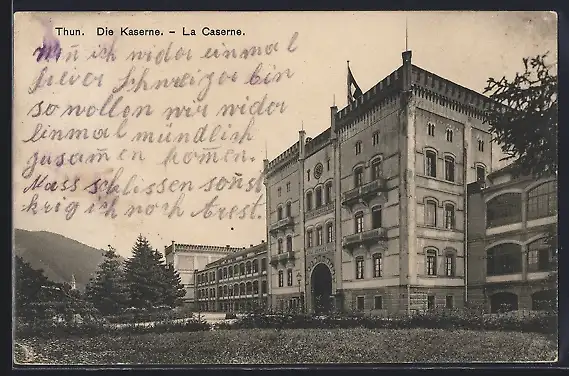 Thun. Die Kaserne. – La Caserne.
Wen̄ ich wider einmal
freier Schweizer bin
so wollen wir wider
einmal mündlich
zusam̄en kom̄en.
Muss schlissen sonst
krig ich noch Arest.